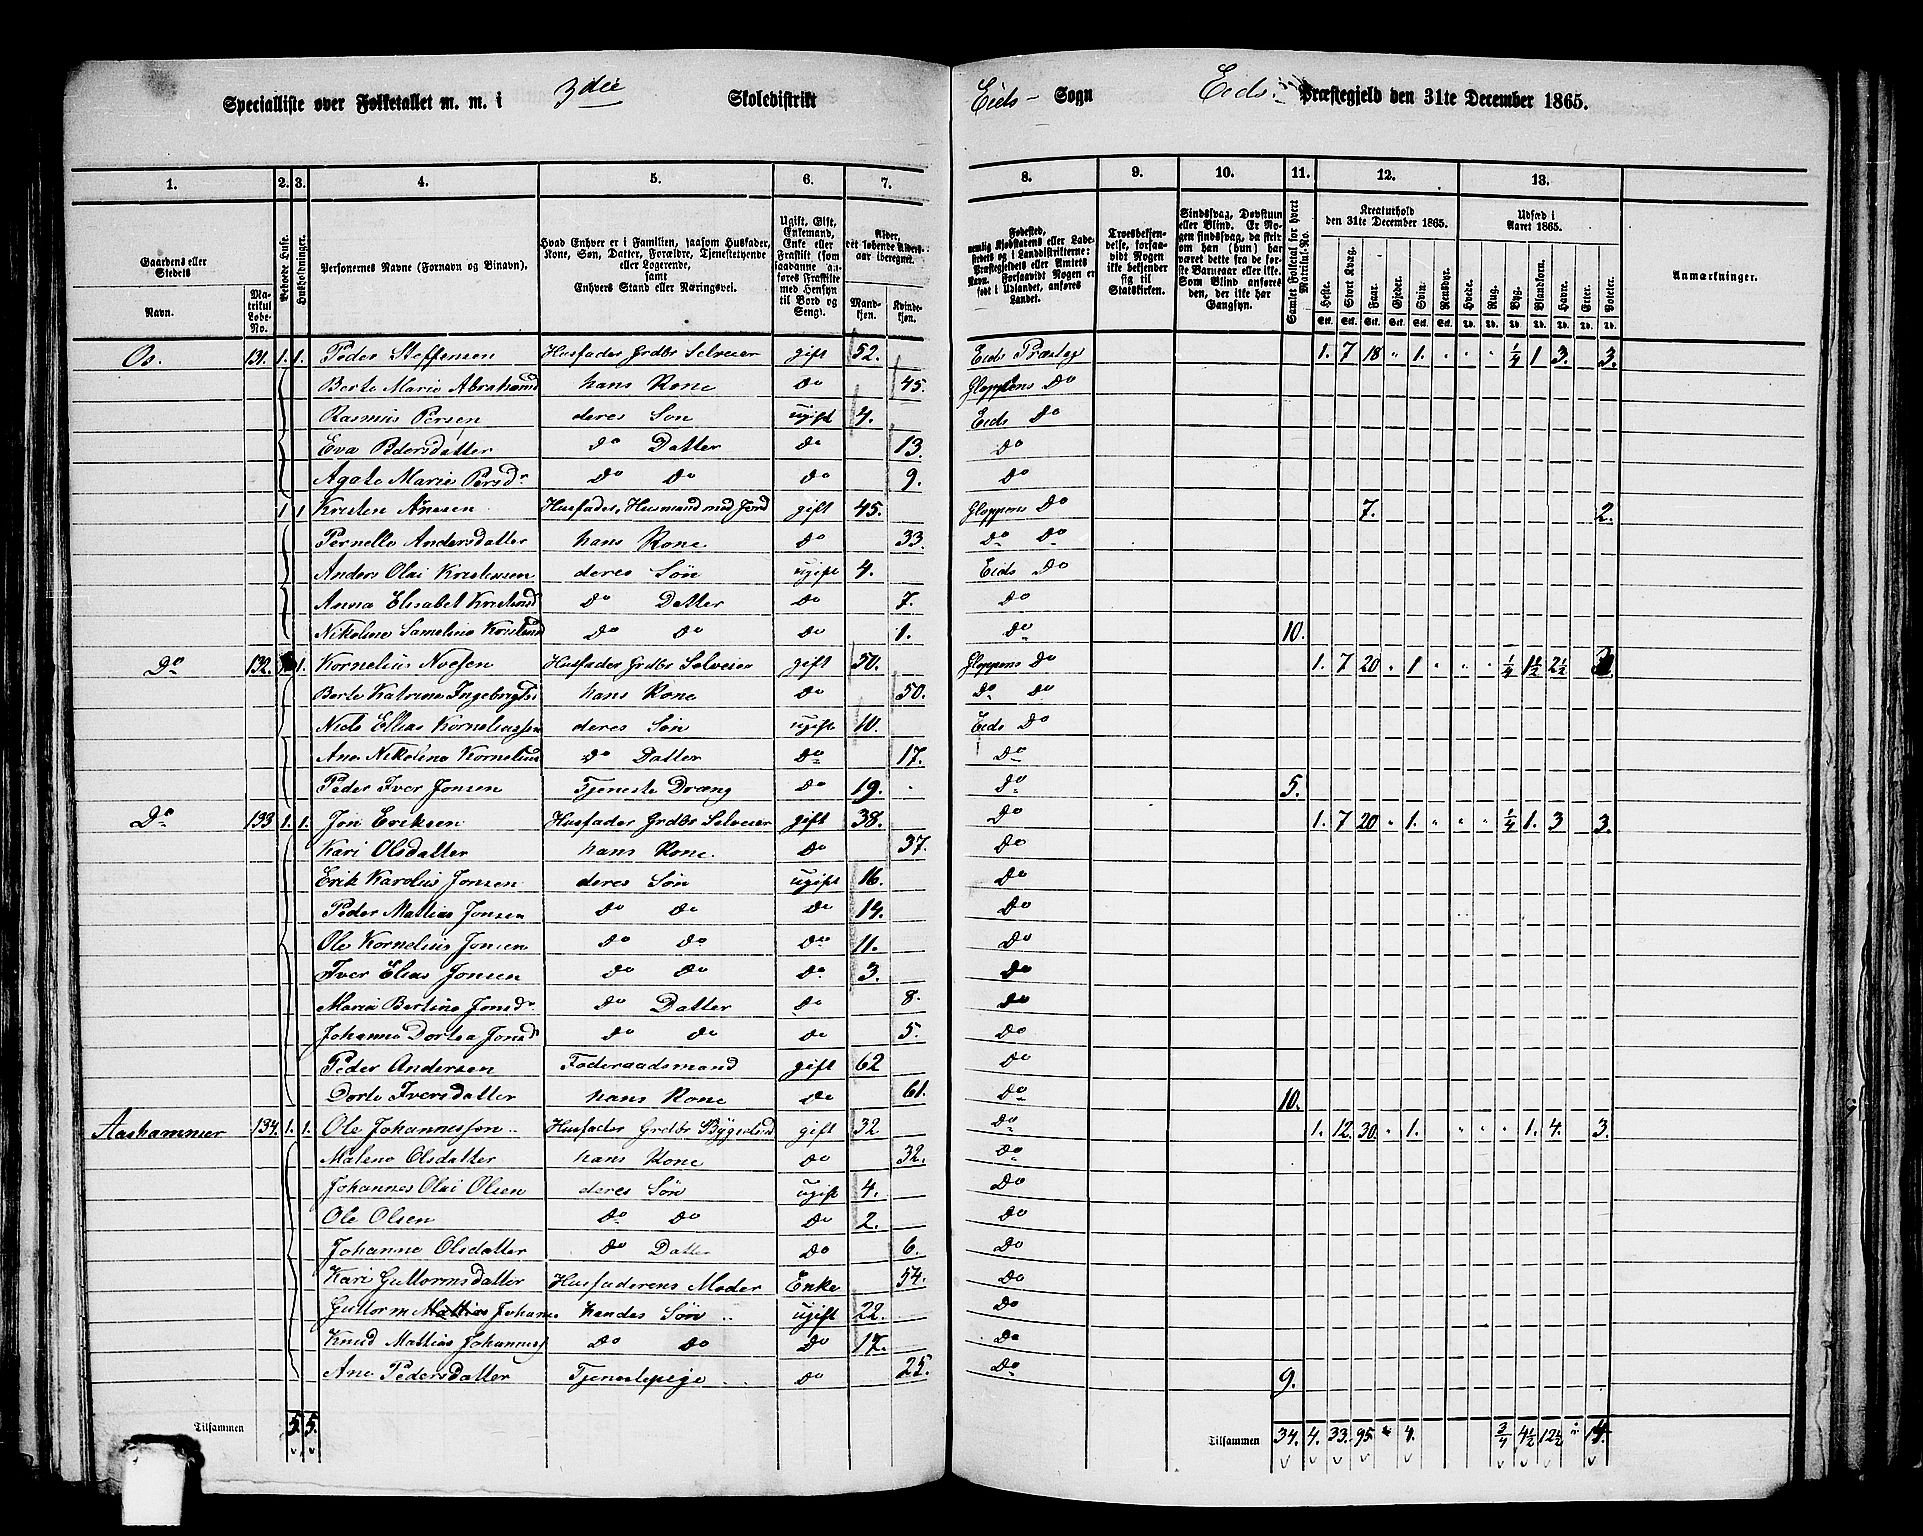 Specialliste over Folketallet m. m. i 3die Skoledistrikt Eids Sogn Eids Præstegjeld den 31te December 1865.
1. 2. 3. 4. 5. 6. 7. 8. 9. 10. 11. 12. 13.
Gaardens eller Stedets Navn. Matrikul Løbe-No. Bebyede Huse. Husholdninger. Personernes Navne (Fornavn og Binavn). Hvad Enhver er i Familien, saasom Husfader, Kone, Søn, Datter, Forældre, Tjenestetyende eller Logerende, samt Enhvers Stand eller Næringsvei. Ugift, Gift, Enkemand, Enke eller Fraskilt (som saadanne anføres Fraskilte med Hensyn til Bord og Seng). Alder, det løbende Aldersaar iberegnet. Mandkjøn. Kvindekjøn.
Fødested, nemlig Kjøbstadens eller Ladestedets og i Landdistrikterne: Præstegjeldets eller Amtets Navn. Forsaavidt Nogen er født i Udlandet, anføres Landet. Troesbekjendelse, forsaavidt Nogen ikke bekjender sig til Statskirken. Sindssvag, Døvstum eller Blind. Er Nogen sindssvag, da skriv om han (hun) har været dette fra de første Barneaar eller ikke. Som Blind anføres den, der ikke har Gangsyn. Samlet Folketal for hvert Matrikul-No. Kreaturhold den 31te December 1865. Heste. Stort Kvæg. Faar. Gjeder. Svin. Rensdyr. Udsæd i Aaret 1865. Hvede. Rug. Byg. Blandkorn. Havre. Erter. Poteter. Anmærkninger.
Os. 131. 1. 1. Peder Steffensen Husfader Grdbr Selveier gift 52. Eids Præsteg 1. 7 18 " 1. " " " 1/4 1 3. 3.
Berte Marie Abrahamsd hans Kone Do 45. Gloppens Do
Rasmus Persen deres Søn ugift 4. Eids Do
Eva Pedersdatter Do Datter Do 13. Do
Agate Marie Persd Do Do Do 9. Do
1 1 Kristen Ansen Husfader, Husmand med Jord gift 45. Gloppens Do 7. 2.
Pernelle Andersdatter hans Kone Do 33. Do Do
Anders Olai Kristensen deres Søn ugift 4. Eids Do
Anna Elisabet Kristensd Do Datter Do 7. Do
Nikoline Sameline Kristensd Do Do Do 1. Do 10.
Do 132. 1. Kornelius Husfader Grdbr Selveier gift 50. Gloppens Do 1. 7 20 " 1 " " " 1/4 1 1/2 2 1/2
Berte Katrine Ingebrigtsd hans Kone Do 50. Do Do
Niels Elias Korneliussen deres Søn ugift 10. Eids Do
Ane Nikoline Kornelius Do Datter Do 17. Do
Peder Iver Jonsen Tjeneste Dræng Do 19. Do 5.
Do 133 1. 1. Jon Eriksen Husfader Grdbr Selveier gift 38. Do 1. 7 20 " 1. " " " 1/4 1. 3 3.
Kari Olsdatter hans Kone. Do 37. Do
Erik Karolus Jonsen deres Søn ugift 16. Do
Peder Mattias Jonsen Do Do Do 14. Do
Ole Kornelius Jonsen Do Do Do 11. Do
Iver Elias Jonsen Do Do Do 3. Do
Maria Bertine Jonsd Do Datter Do 8. Do
Johanne Dortea Jonsd Do Do Do 5. Do
Peder Andersen Føderaadsmand gift 62 Do
Dorte Iversdatter hans Kone Do 61. Do 10.
Aashammer 134. 1. 1. Ole Johannessøn Husfader Grdbr Bygselmd gift 32 Do 1. 12. 30. " 1. " " " 1. 4. 3.
Malene Olsdatter hans Kone Do 32. Do
Johannes Olai Olsen deres Søn ugift 4. Do
Ole Olsen Do Do Do 2. Do
Johanne Olsdatter Do Datter Do 6. Do
Kari Guttormsdatter Husfaderens Moder Enke 54. Do
Guttorm Mattias Johanne hendes Søn ugift 22. Do
Knud Mattias Johanness Do Do Do 17. Do
Ane Pedersdatter Tjenestepige Do 25. Do 9.
Tilsammen 5. 5. Tilsammen 34. 4. 33. 95 " 4. 3/4 4 1/2 12 1/2 " 14.